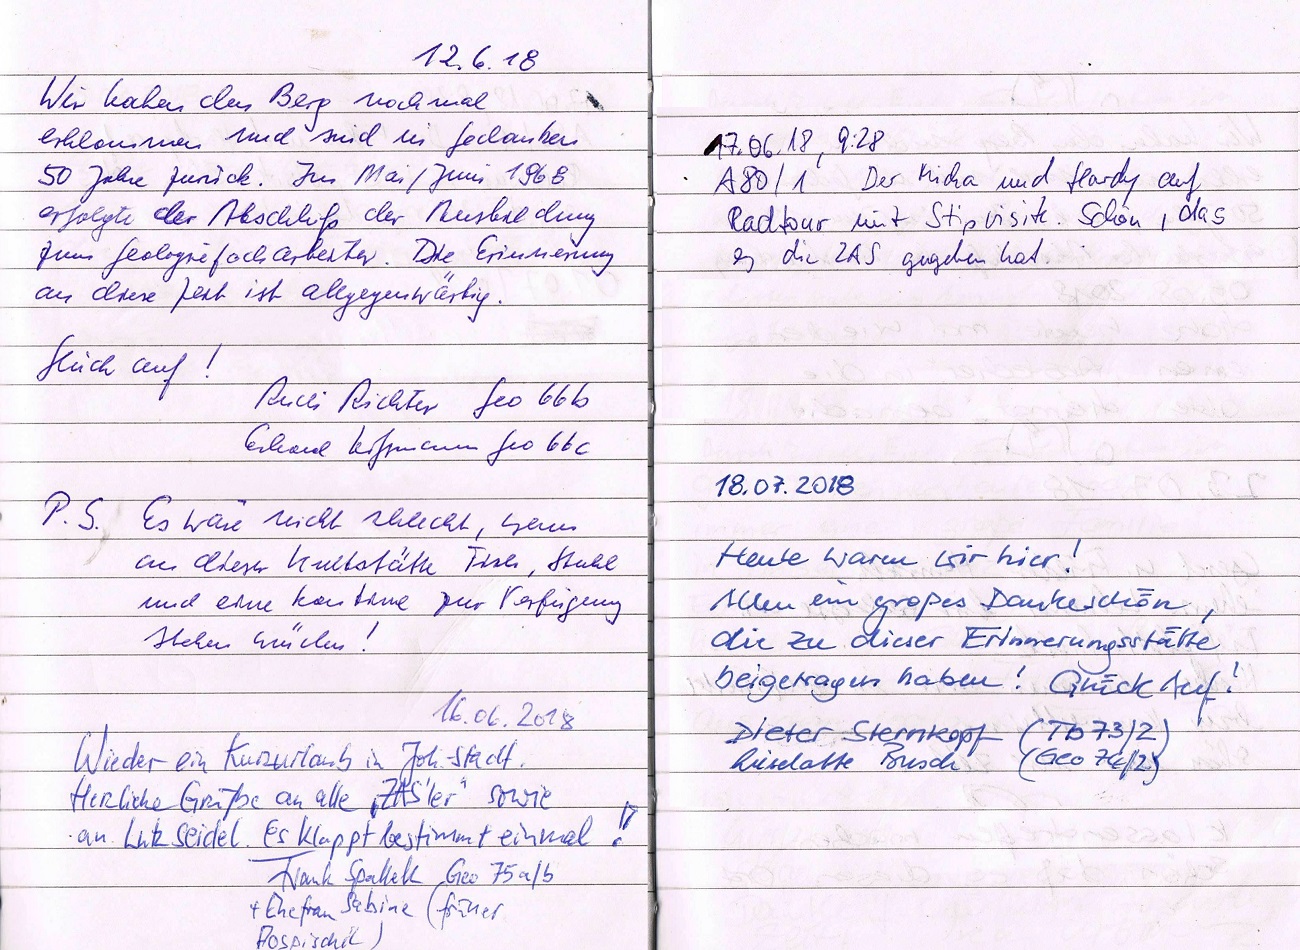 12.6.18
Wir haben den Berg nochmal
erklommen und sind in Gedanken
50 Jahre zurück. Im Mai/Juni 1968
erfolgte der Abschluß der Ausbildung
zum Geologiefacharbeiter. Die Erinnerung
an diese Zeit ist allgegenwärtig.
Glück auf!
Richter Geo 66b
Erhard Geo 66c
P.S. Es wäre nicht schlecht, wenn
an dieser Kultstätte Tisch, Stuhl
und eine Kantine zur Verfügung
stehen würden!
16.06.2018
Wieder ein Kurzurlaub in Joh.-Stadt.
Herzliche Grüße an alle „ZAS'ler" sowie
an Lutz Seidel. Es klappt bestimmt einmal!!
Frank Spallek Geo 75a/b
+ Ehefrau Sabine (früher
Pospischil)
17.06.18, 9:28
A80/1 Der Micha und Hardy auf
Radtour mit Stipvisite. Schön, das
es die ZAS gegeben hat.
18.07.2018
Heute waren wir hier!
Allen ein großes Dankeschön,
die zu dieser Erinnerungsstätte
beigetragen haben! Glück Auf!
Dieter Sternkopf (Tb73/2)
Liselotte Busch (Geo 74/2)